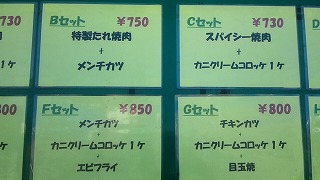 730
Bセット ￥750
特製たれ焼肉
+
メンチカツ
Cセット ￥730
スパイシー焼肉
+
カニクリームコロッケ1ヶ
D
800
Fセット ￥850
メンチカツ
+
カニクリームコロッケ1ヶ
+
エビフライ
Gセット ￥800
チキンカツ
+
カニクリームコロッケ1ヶ
+
目玉焼
H